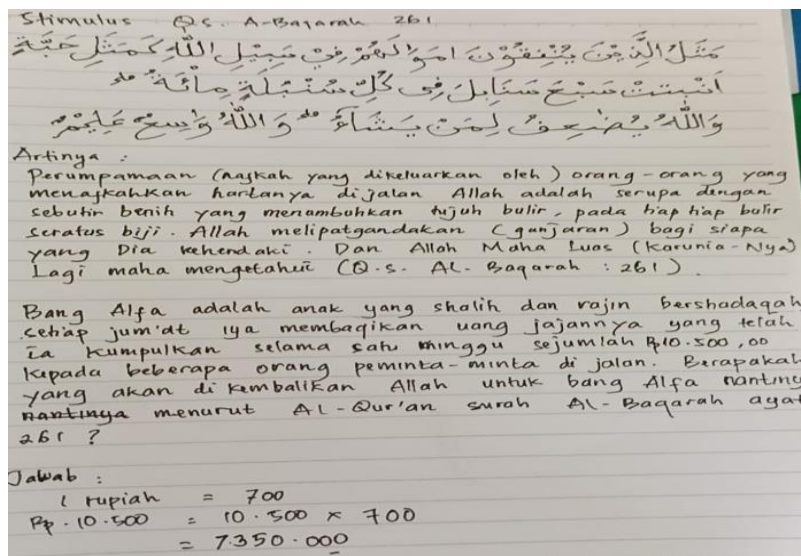 Stimulus Q.S. A-Baqarah 261
مَثَلُ الَّذِيْنَ يُنْفِقُوْنَ اَمْوَالَهُمْ فِيْ سَبِيْلِ اللّٰهِ كَمَثَلِ حَبَّةٍ
اَنْۢبَتَتْ سَبْعَ سَنَابِلَ فِيْ كُلِّ سُنْۢبُلَةٍ مِّائَةُ
وَاللّٰهُ يُضٰعِفُ لِمَنْ يَّشَاۤءُ ۗ وَاللّٰهُ وَاسِعٌ عَلِيْمٌ
Artinya :
Perumpamaan (nafkah yang dikeluarkan oleh) orang-orang yang
menafkahkan hartanya dijalan Allah adalah serupa dengan
sebutir benih yang menumbuhkan tujuh bulir, pada tiap tiap bulir
seratus biji. Allah melipatgandakan (ganjaran) bagi siapa
yang Dia kehendaki. Dan Allah Maha Luas (Karunia-Nya)
Lagi maha mengetahui (Q.s. AL-Baqarah : 261).
Bang Alfa adalah anak yang shalih dan rajin bershadaqah
setiap jum'at iya membagikan uang jajannya yang telah
ia kumpulkan selama satu minggu sejumlah Rp10.500,00
kepada beberapa orang peminta-minta di jalan. Berapakah
yang akan di kembalikan Allah untuk bang Alfa nanting
nantinya menurut AL-Qur'an surah AL-Baqarah ayat
261 ?
Jawab :
1 rupiah = 700
Rp. 10.500 = 10.500 x 700
= 7.350.000